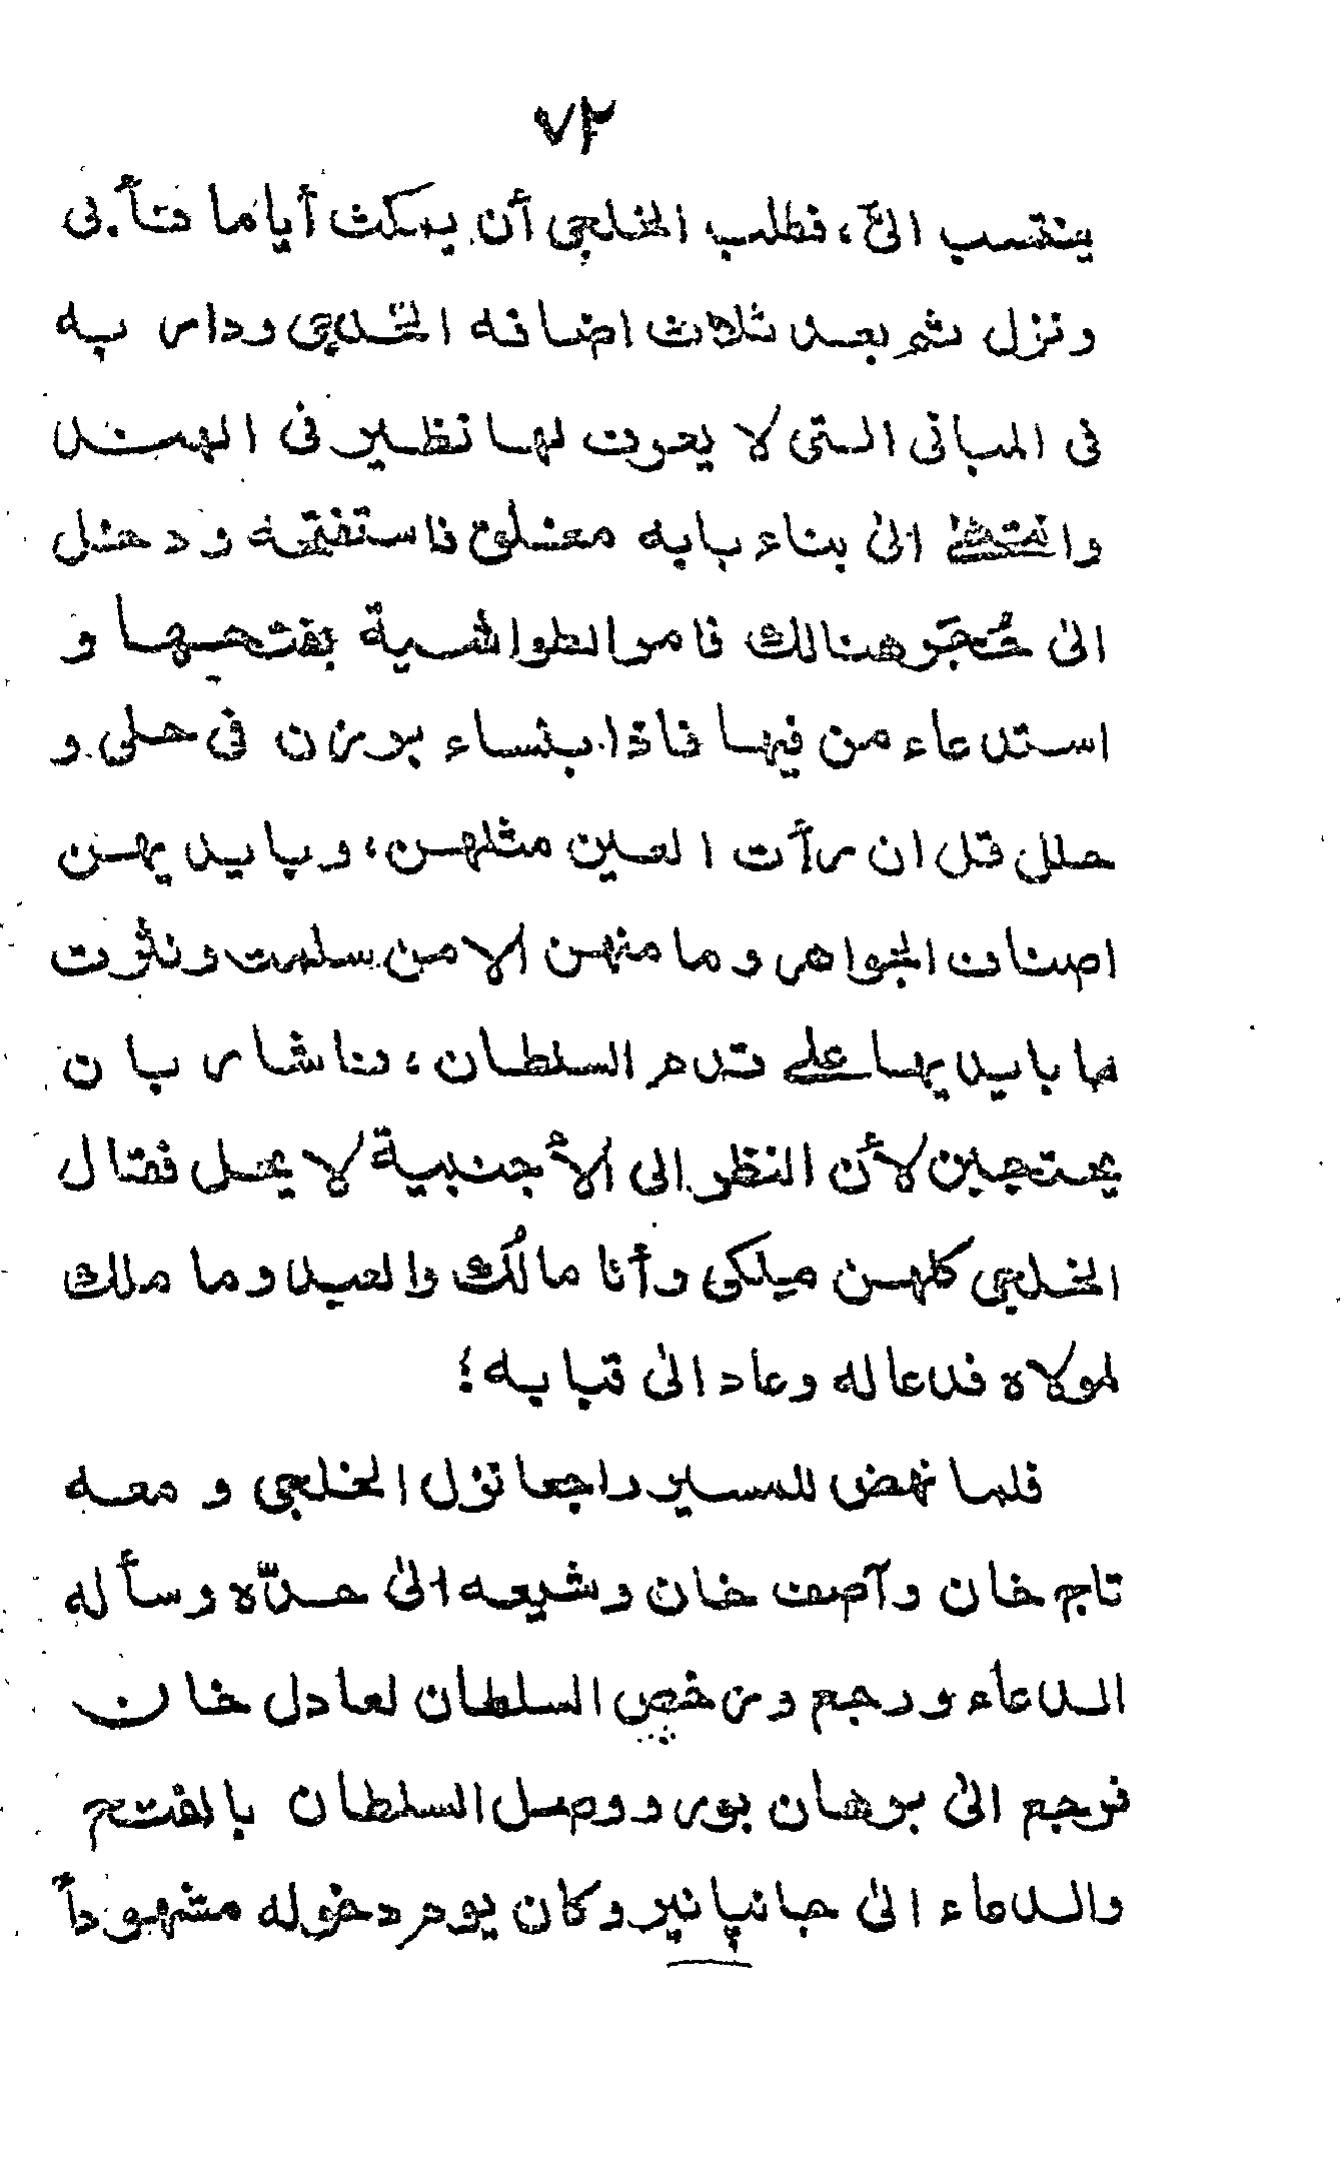 ٧٢
ينتسب الىّ، فطلب الخلجى أن يمكث أياما فتأبى
ونزل ثم بعد ثلاث اضافه الخلجى ودار به
فى المبانى التى لا يعرف لها نظير فى الهند
وانتهى الى بناء بابه مغلق فاستفتحه ودخل
الىٰ حُجَر هنالك فامر الطواشية بفتحها و
استدعاء من فيها فاذا بنساء برزن فى حلى و
حلل قل ان رأت العين مثلهن، وبايديهن
اصناف الجواهر وما منهن الا من سلمت ونثرت
ما بايديها على قدم السلطان، فاشار بان
يحتجبن لأن النظر الى الأجنبية لا يحل فقال
الخلجى كلهن ملكى وأنا مالُك والعبد وما ملك
لمولاه فدعا له وعاد الىٰ قبابه؛
فلما نهض للمسير راجعا نزل الخلجى و معه
تاج خان وآصف خان وشيعه الىٰ حدّه وسأله
الدعاء ورجع ورخص السلطان لعادل خان
فرجع الىٰ برهان بور ووصل السلطان بالفتح
والدعاء الىٰ جانپانير وكان يوم دخوله مشهوداً